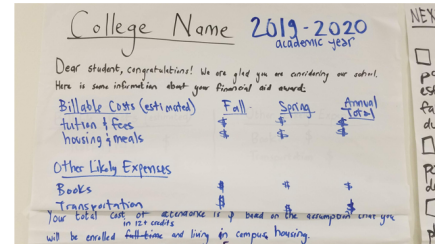 College Name 2019-2020
academic year
Dear student, congratulations! We are glad you are considering our school.
Here is some information about your financial aid award:
Billable Costs (estimated) Fall Spring Annual Total
tuition & fees $ $ $
housing & meals $ $ $
Other Likely Expenses
Books $ $ $
Transportation $ $ $
Your total cost of attendance is $ based on the assumption that you
in 12+ credits
will be enrolled full-time and living in campus housing.
NEX